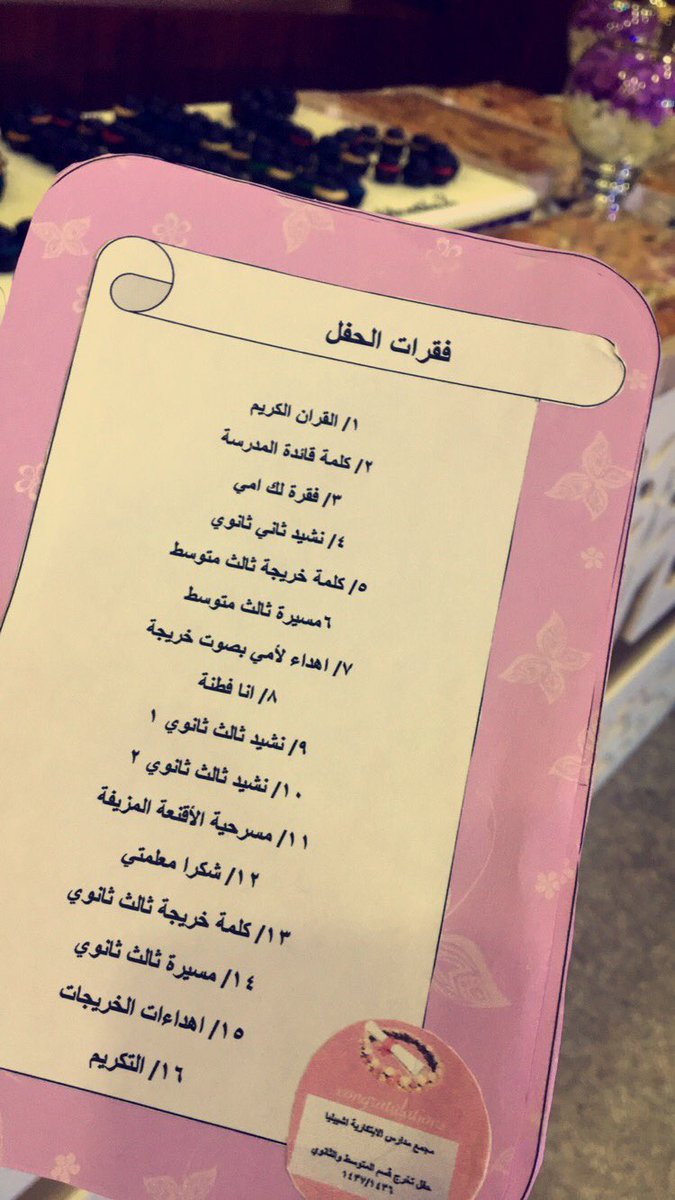 فقرات الحفل
١/ القران الكريم
٢/ كلمة قائدة المدرسة
٣/ فقرة لك امي
٤/ نشيد ثاني ثانوي
٥/ كلمة خريجة ثالث متوسط
٦مسيرة ثالث متوسط
٧/ اهداء لأمي بصوت خريجة
٨/ انا فطنة
٩/ نشيد ثالث ثانوي ١
١٠/ نشيد ثالث ثانوي ٢
١١/ مسرحية الأقنعة المزيفة
١٢/ شكرا معلمتي
١٣/ كلمة خريجة ثالث ثانوي
١٤/ مسيرة ثالث ثانوي
١٥/ اهداءات الخريجات
١٦/ التكريم
congratulations
مجمع مدارس الابتكارية اشبيليا
حفل تخرج قسم المتوسط والثانوي
١٤٣٧/١٤٣٦